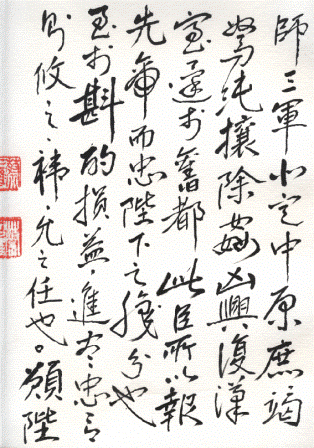 師三軍北定中原庶竭
駑鈍攘除姦凶興復漢
室還於舊都此臣所以報
先帝而忠陛下之職分也
至於斟酌損益進盡忠言
則攸之禕允之任也。願陛